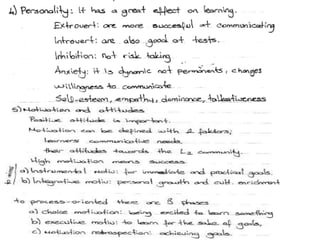 4) Personality: It has a great effect on learning.
Extrovert: are more succesful at communicating
Introvert: are also good at tests.
Inhibition: not risk taking
Anxiety: it is dynamic not permanents, changes
willingness to communicate
Self-esteem, empathy, dominance, talkativeness
5) Motivation and attitudes
Positive attitude is important.
Motivation can be defined with 2 faktörs;
learners' communicative needs.
their attitudes towards the L2 community.
High motivation means success
a) Instrumental motiv: for immediate and practical goals.
b) Integrative motiv: personal growth and cult. enrichment
to process-oriented there are 3 phases
a) choice motivation: being excited to learn something
b) executive motiv: to learn for the sake of goals,
c) Motivation retrospection: achieving goals.